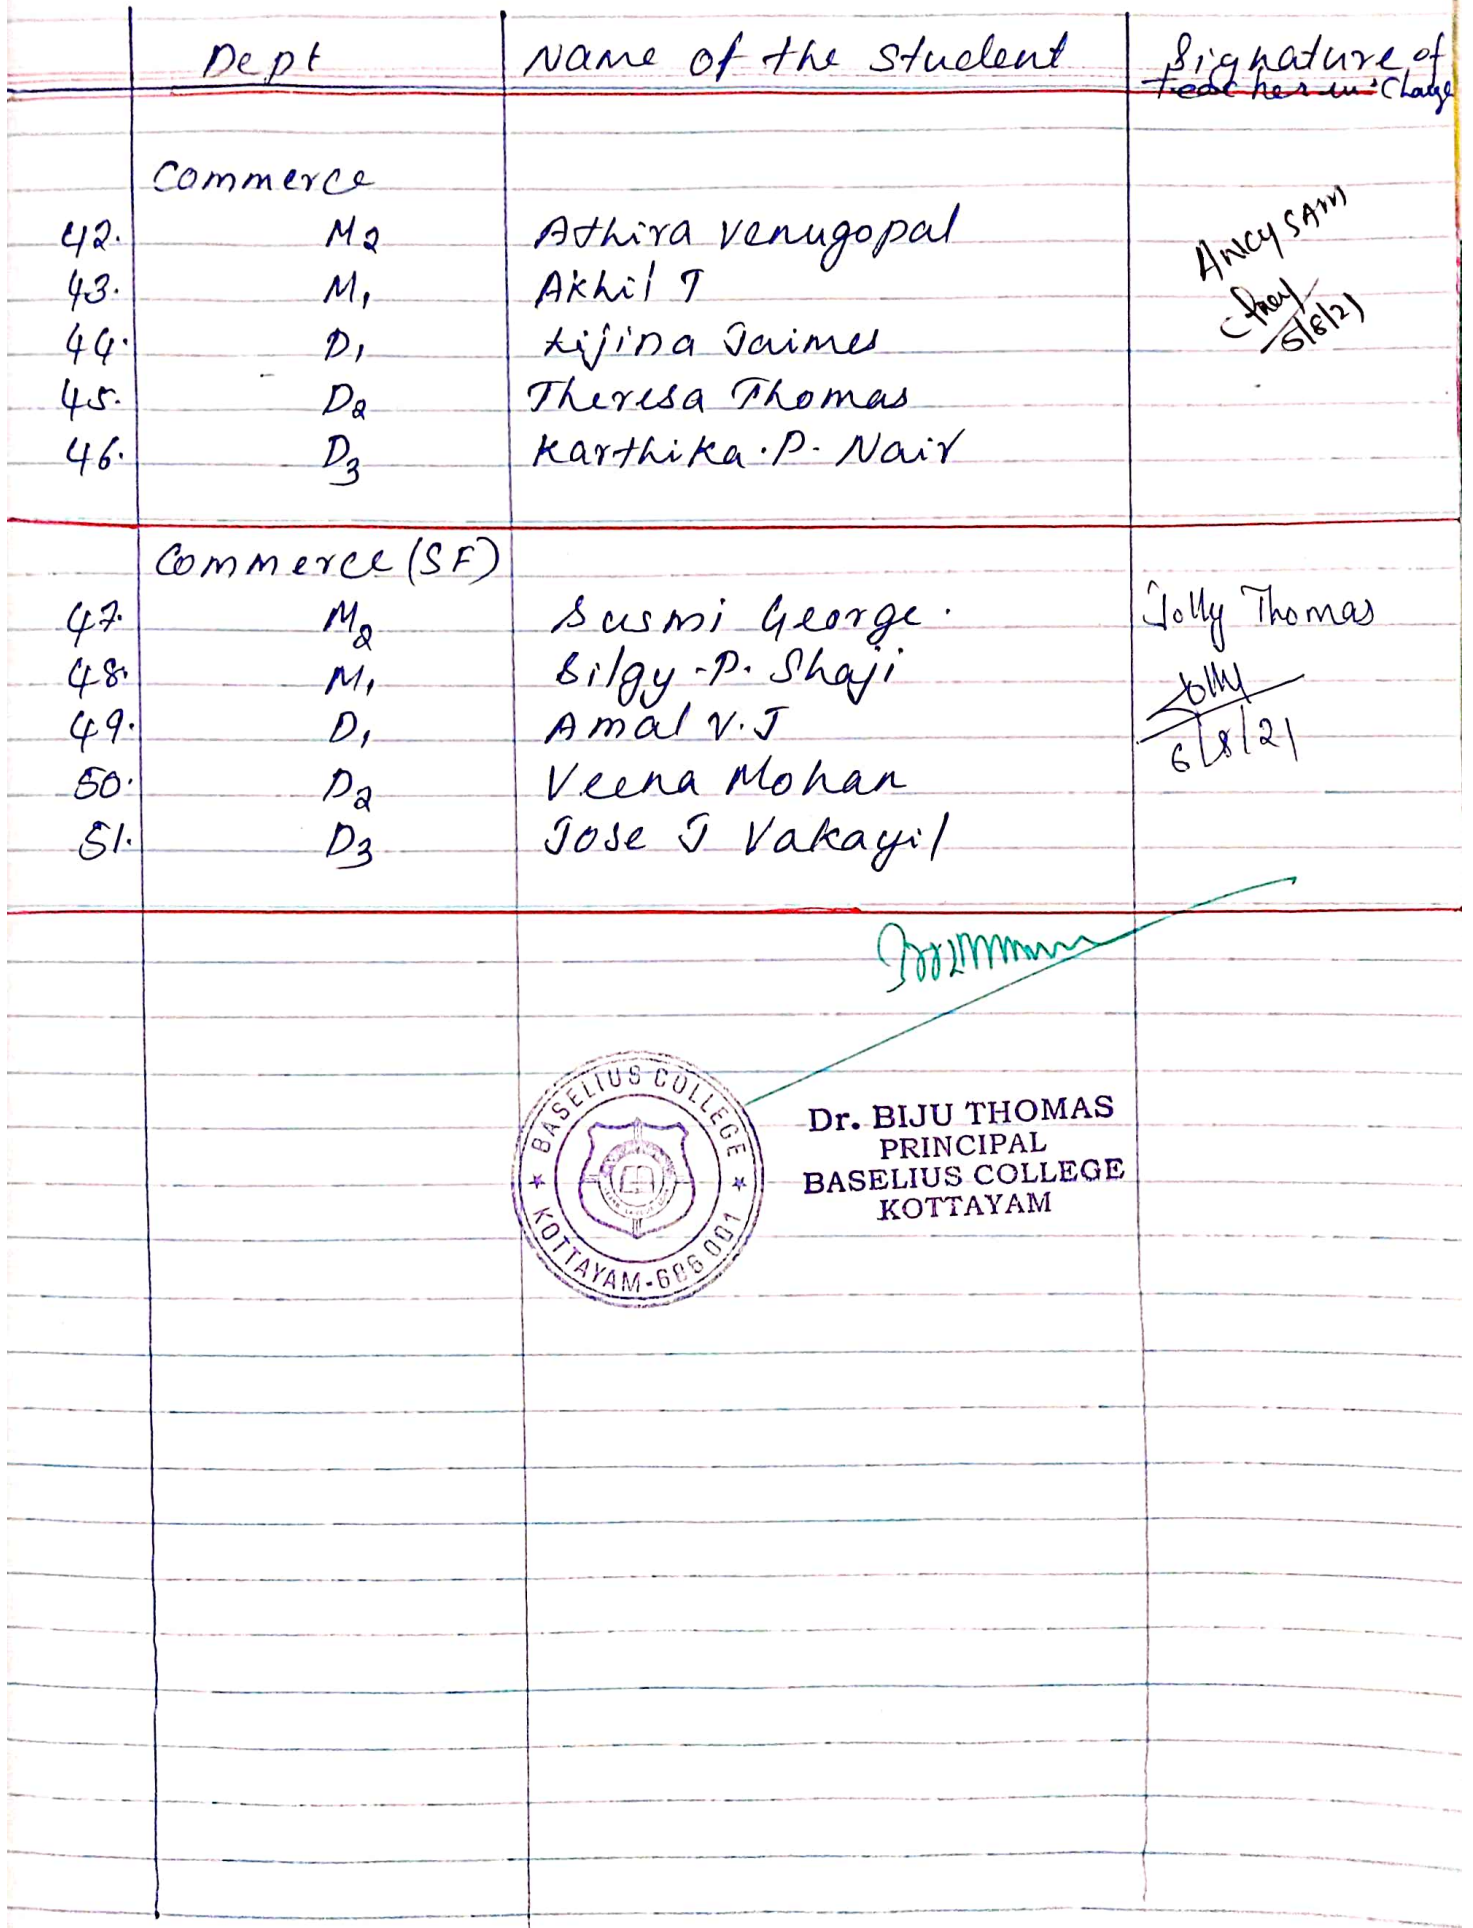 Dept Name of the student Signature of
teacher in Charge
Commerce
42. M2 Athira Venugopal
43. M1 Akhil T
44. D1 Lijina Jaimes
45. D2 Theresa Thomas
46. D3 Karthika.P. Nair
ANCY SAM
5/8/21
Commerce (SF)
47. M2 Susmi George. Jolly Thomas
48. M1 Silgy.P. Shaji Jolly
49. D1 Amal V.J 6/8/21
50. D2 Veena Mohan
51. D3 Jose J Vakayil
BASELIUS COLLEGE
KOTTAYAM-686 001
Dr. BIJU THOMAS
PRINCIPAL
BASELIUS COLLEGE
KOTTAYAM